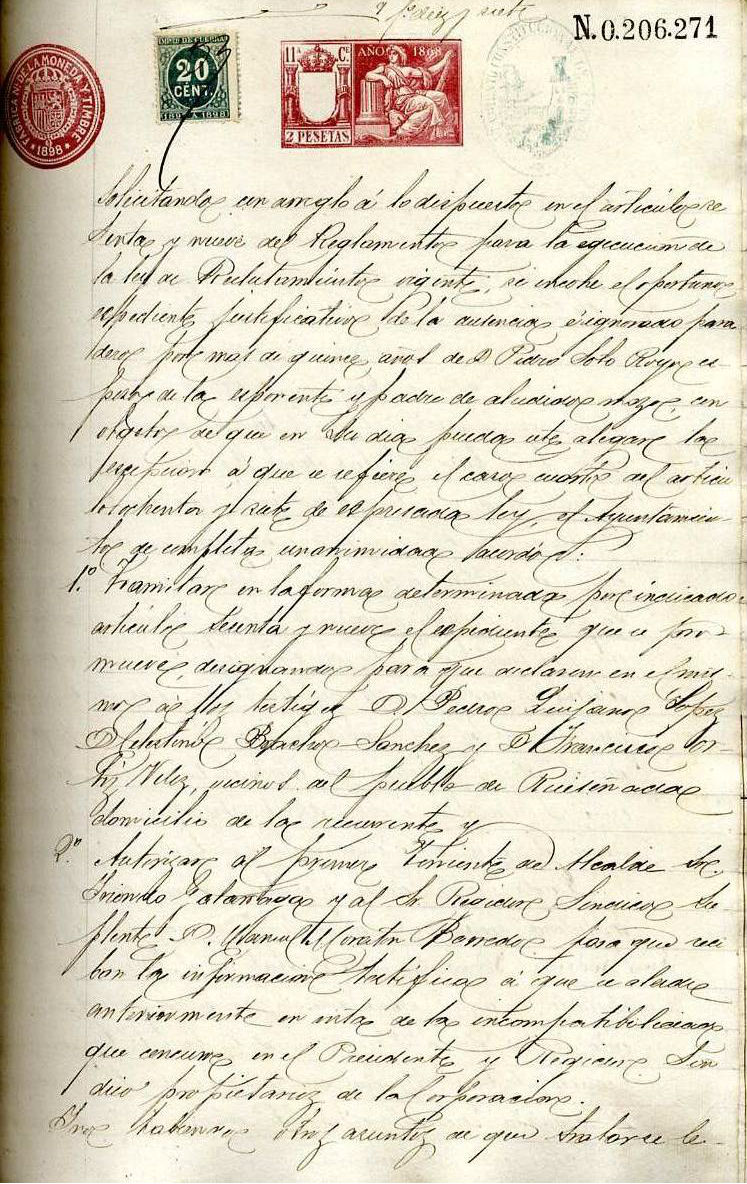 y diez y siete
N.0.206.271
FABRICA N. DE LA MONEDA Y TIMBRE
1898
IMPTO DE GUERRA
20
CENT.
1898 A 1898
11ª Cᴱ
AÑO 1898
2 PESETAS
Solicitando con arreglo á lo dispuesto en el articulo se
senta y nueve del Reglamento para la egecucion de
la ley de Reclutamiento vigente, se incohe el oportuno
espediente justificativo de la ausencia é ignorado para
dero por más de quince años de D. Pedro Solo Royo es-
poso de la esponente y padre de aludido mozo, con
objeto de que en su dia pueda este alegar la
escepcion á que se refiere el caso cuarto del articu
lo ochenta y siete de espresada ley, el Ayuntamien-
to de completa unanimidad acordó:
1.º Tramitar en la forma determinada por indicado
articulo sesenta y nueve el espediente que se pro-
mueve, designando para que declaren en el mis-
mo á los testigos D. Pedro Quijano López
D. Celestino Bracho Sanchez y D. Francisco Or-
tiz Velez, vecinos del pueblo de
domicilio de la recurrente y
2.º Autorizar al primer Teniente de Alcalde Sr.
y al Sr. Regidor Sindico Su
plente D. Manuel Barredo para que reci
ban la informacion testifical á que se alude
anteriormente en vista de la incompatibilidad
que concurre en el Presidente y Regidor Sin
dico propietario de la Corporacion.
Y no habiendo otros asuntos de que tratar se le-